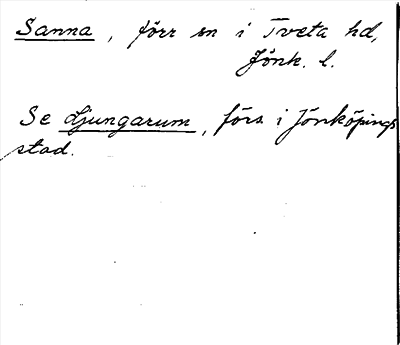 Sanna, förr sn i Tveta hd,
Jönk. l.
Se Ljungarum, förs. i Jönköpings
stad.